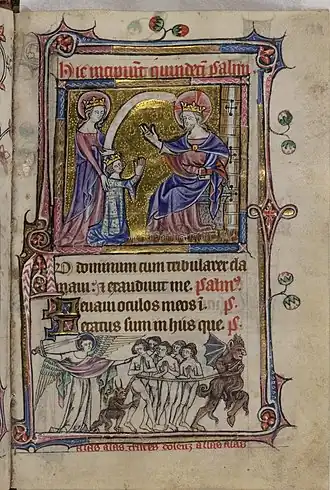 Hic incipiunt quindecim psalmi
AD dominum cum tribularer cla
maui: et exaudiuit me. psalmus
Leuaui oculos meos i. ps.
Letatus sum in hiis que. ps.
alas alas